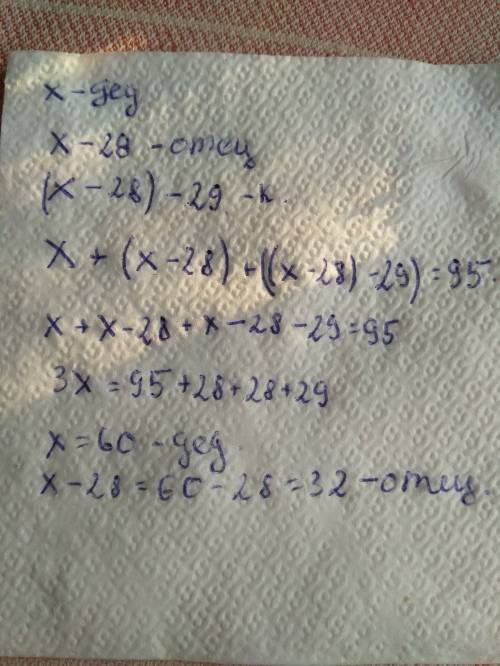 x - дед
x - 28 - отец
(x - 28) - 29 - к.
x + (x - 28) + ((x - 28) - 29) = 95.
x + x - 28 + x - 28 - 29 = 95
3x = 95 + 28 + 28 + 29
x = 60 - дед.
x - 28 = 60 - 28 = 32 - отец.